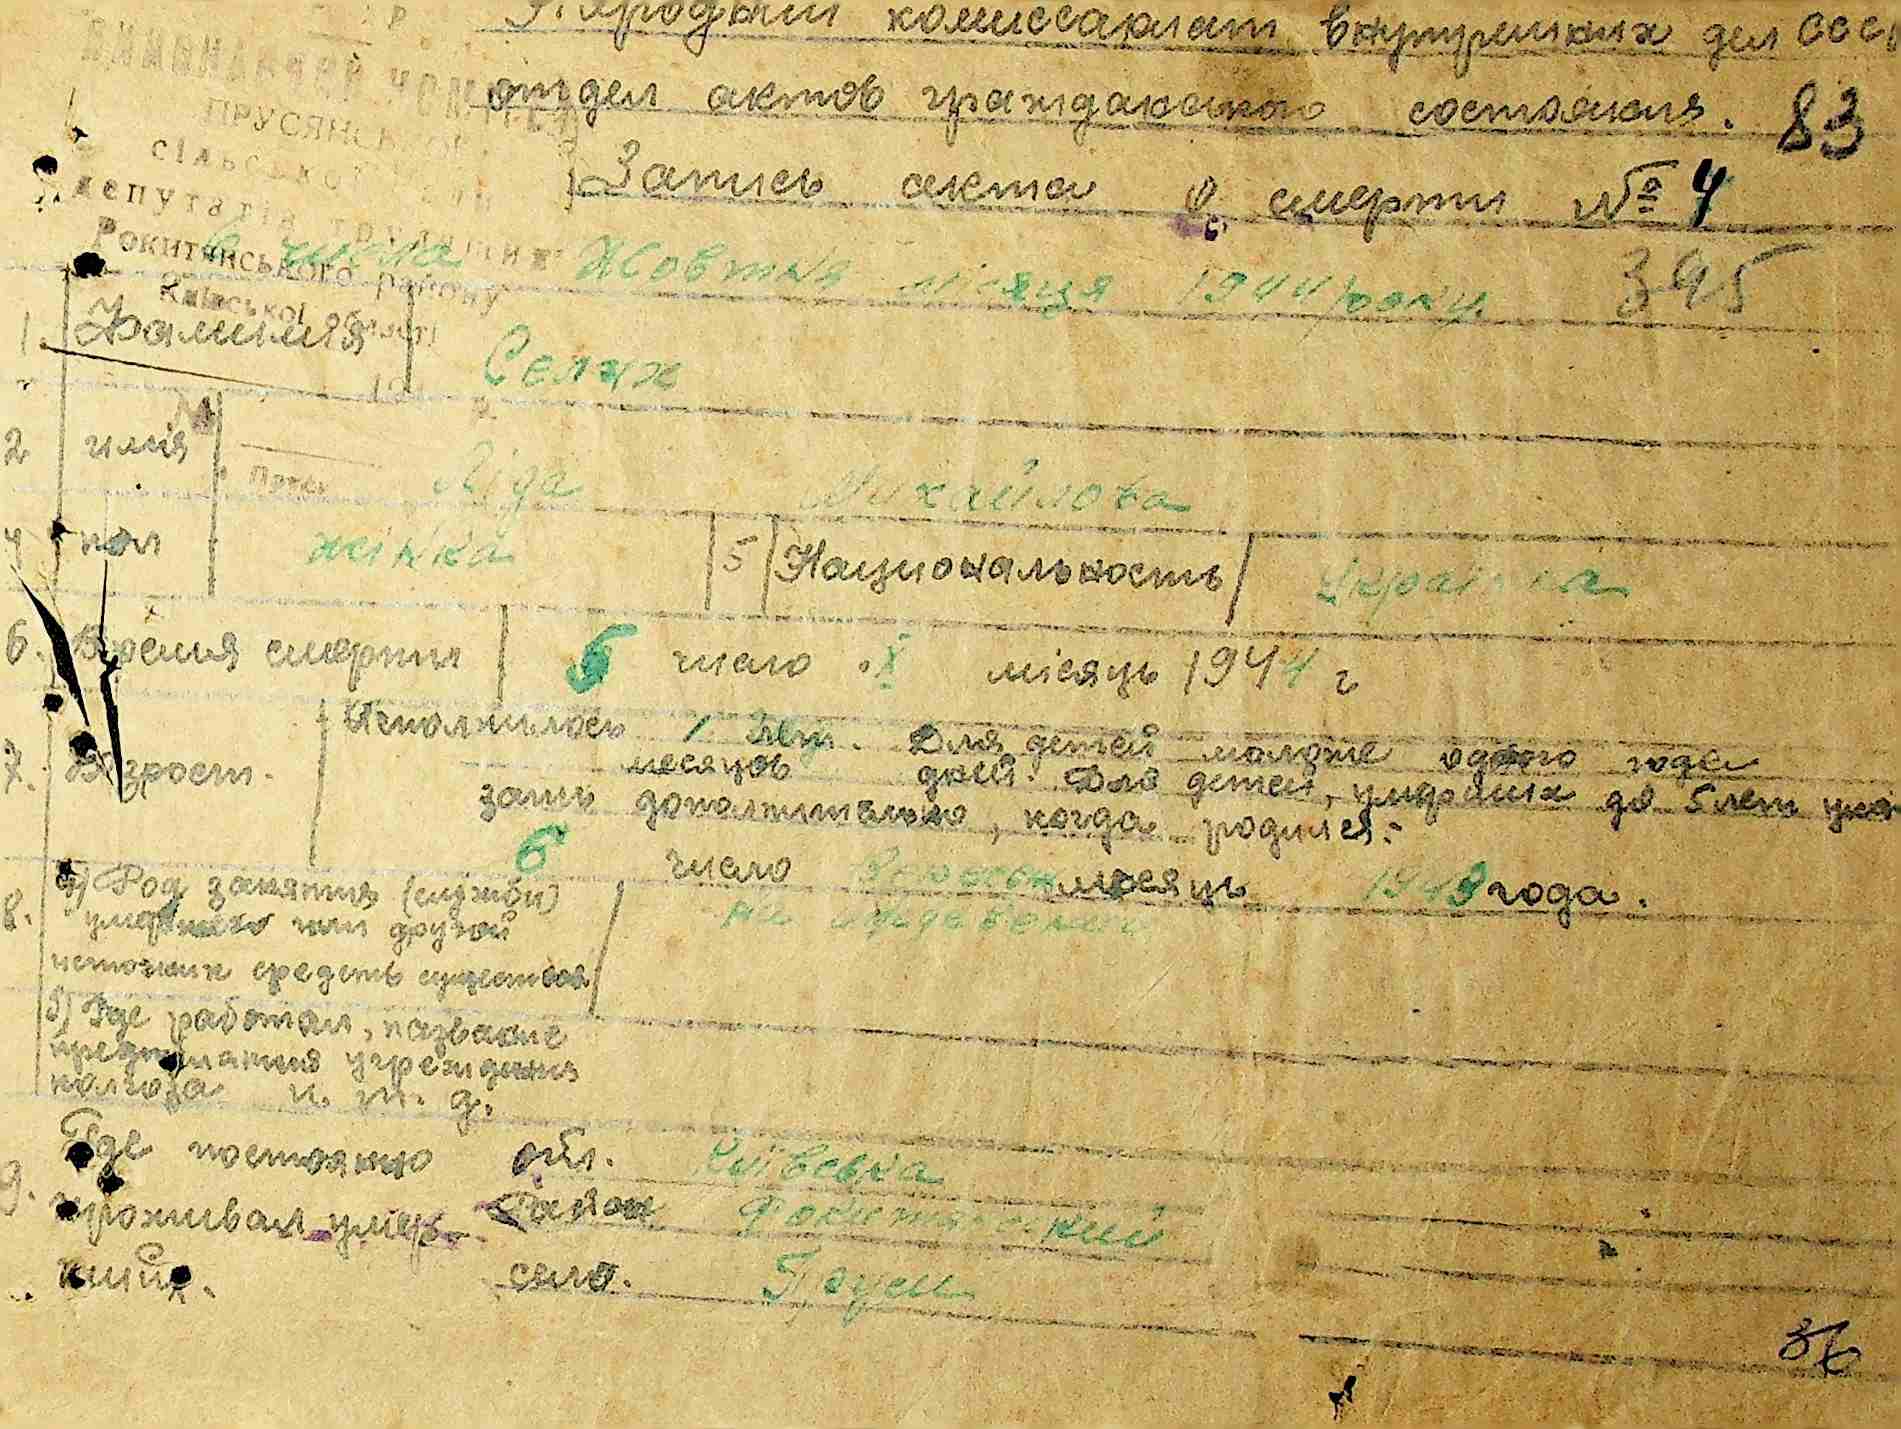 Народный комиссариат внутрених дел СССР
отдел актов гражданского состояния. 83
Запись акта о смерти № 4
ПРУСЯНСЬКОЇ
СІЛЬСЬКОЇ
депутатів трудящих
Рокитянського району
Київської області
6 числа Жовтня місяця 1944 року. 395
1. Фамилия
2 имя Ліда Михайлова
4 пол жінка 5 Национальность Українка
6. Время смерти 5 число X місяць 1944 г
7. Возраст. Исполнилось 1 лет. Для детей моложе одного года
месяцов дней. Для детей, умерших до 5 лет ука
зать дополнительно, когда родился.
6 число месяць 1943 года.
8. а) Род занятия (службы)
умершего или другой
источник средств существов
б) Где работал, название
предприятия учреждения
колхоза и. т. д.
9. Где постоянно обл. Київська
проживал умер- район Рокитянский
ший. село. Пруси
36